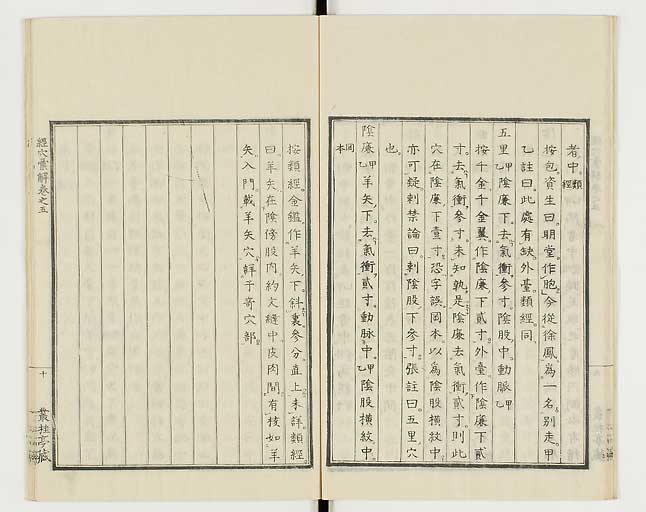 者中類經
按包資生曰明堂作胞今從徐鳳爲一名別走甲
乙註曰此處有缺外臺類經同
五里甲乙陰廉下去氣衝參寸陰股中動脈甲乙
按千金千金翼作陰廉下貳寸外臺作陰廉下貳
寸去氣衝參寸未知孰是陰廉去氣衝貳寸則此
穴在陰廉下壹寸恐字誤岡本以爲陰股橫紋中
亦可疑刺禁論曰刺陰股下參寸張註曰五里穴
也
陰廉甲乙羊矢下去氣衝貳寸動脉中甲乙陰股橫紋中
岡本
按類經金鑑作羊矢下斜裏參分直上未詳類經
曰羊矢在陰傍股內約文縫中皮肉間有核如羊
矢入門載羊矢穴詳于奇穴部
經穴彙解卷之五
十
叢桂亭藏